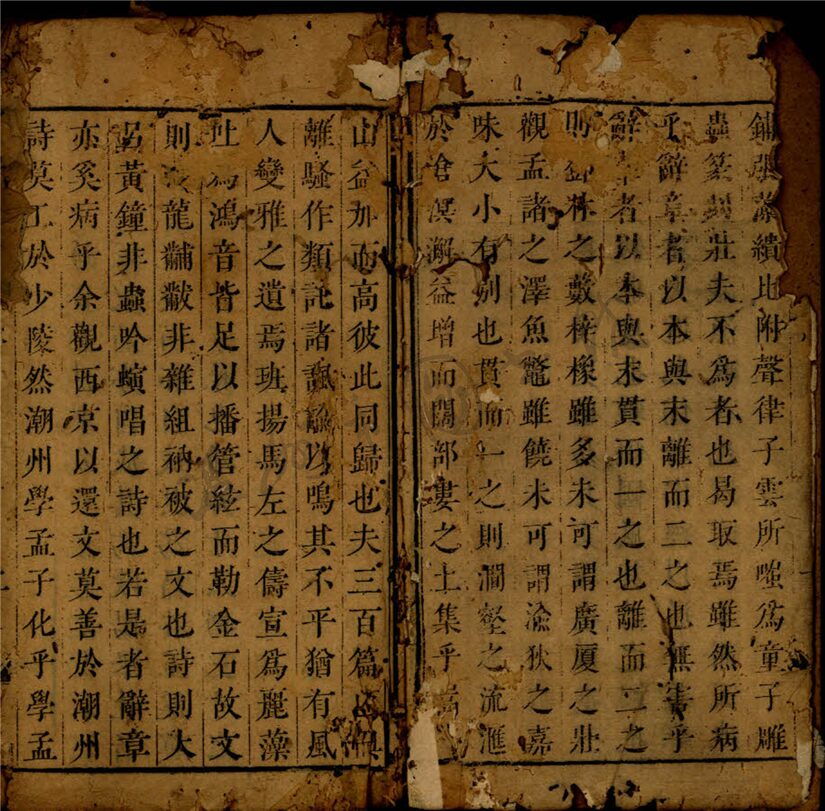 鋪張藻繢比附聲律子雲所嗤爲童子雕
蟲篆刻壯夫不爲者也曷取焉雖然所病
乎辭章者以本與末離而二之也無害乎
辭章者以本與末貫而一之也離而二之
則鄧林之藪梓橡雖多未可謂廣厦之壯
觀孟諸之澤魚鼈雖饒未可謂瀹狄之嘉
味大小有別也貫而一之則澗壑之流滙
於滄溟澥益增而闊部婁之土集乎
山益加而高彼此同歸也夫三百篇
離騷作類託諸諷諭以鳴其不平猶有風
人變雅之遺焉班揚馬左之儔宣爲麗藻
吐爲鴻音皆足以播管絃而勒金石故文
則龍黼黻非雜組衲被之文也詩則大
呂黃鐘非蟲吟螾唱之詩也若是者辭章
亦奚病乎余觀西京以還文莫善於潮州
詩莫工於少陵然潮州學孟子化乎學孟